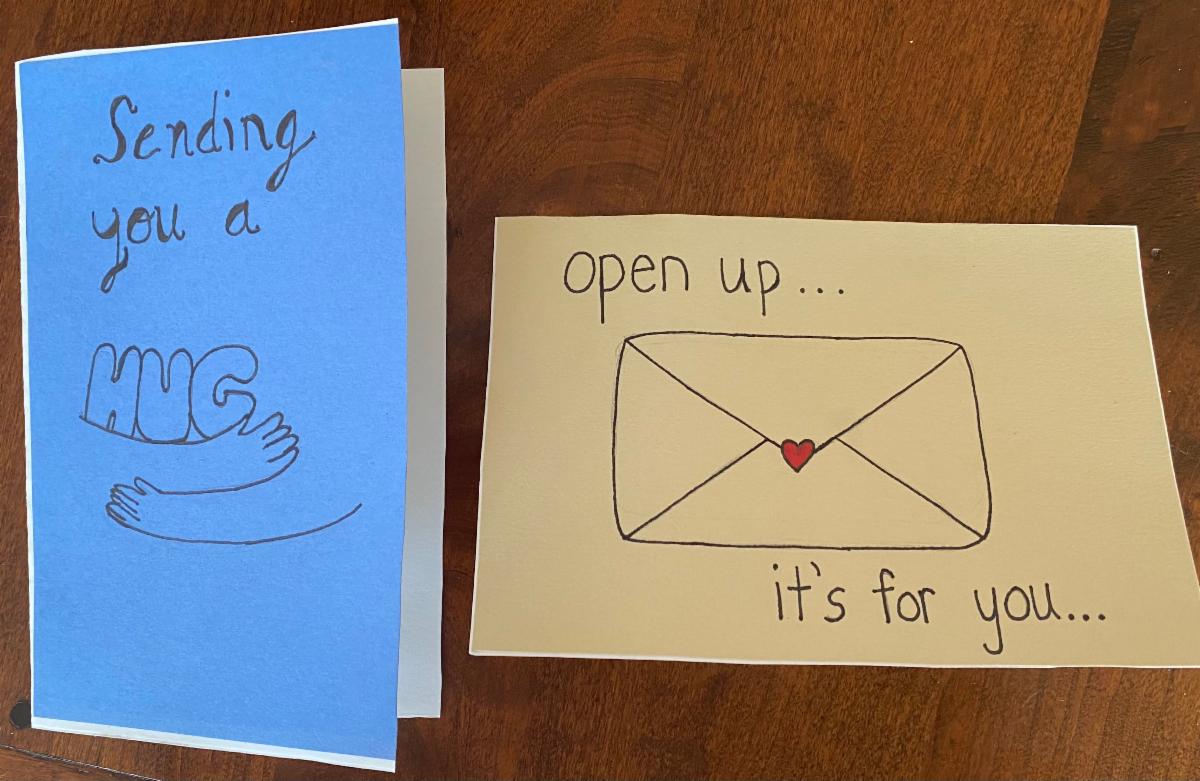 Sending
you a
HUG
open up...
it's for you...